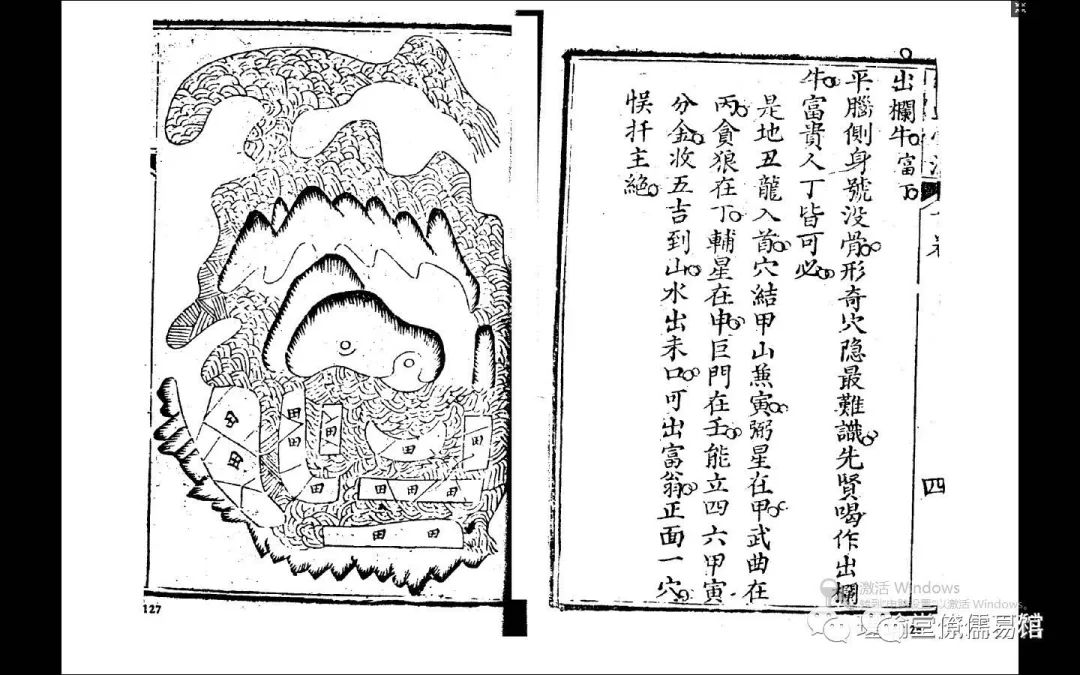 出欄牛富下
平腦側身號没骨形奇穴隐最難識先賢喝作出欄
牛富貴人丁皆可必
是地丑龍入首穴結甲山蒹寅弼星在甲武曲在
丙貪狼在丁輔星在申巨門在壬能立四六甲寅
分金收五吉到山水出未口可出富翁正面一穴
悮扦主絶
四
田
田
田
田
田
田
田
田
田
田
田
田
田
127
激活 Windows
以激活 Windows
堂僚儒易馆